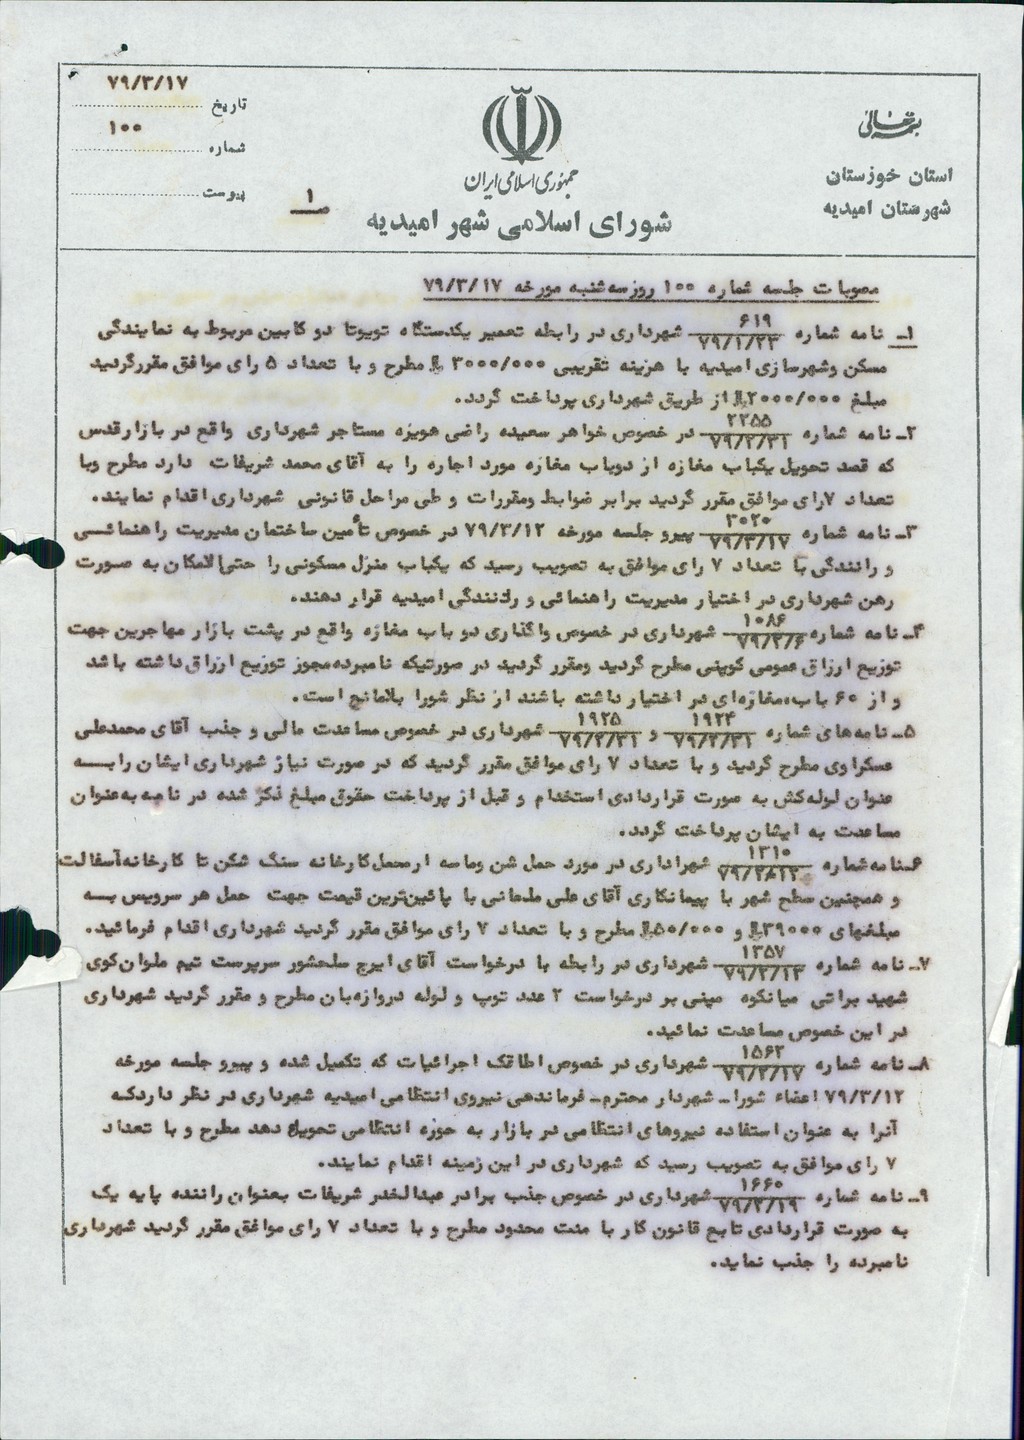 ۷۹/۳/۱۷
تاریخ
۱۰۰
شماره
پیوست
بسمه تعالی
استان خوزستان
شهرستان امیدیه
جمهوری اسلامی ایران
شورای اسلامی شهر امیدیه
صـ ۱
مصوبات جلسه شماره ۱۰۰ روز سه شنبه مورخه ۷۹/۳/۱۷
۱ـ نامه شماره ۶۱۹ / ۷۹/۱/۲۳ شهرداری در رابطه تعمیر یکدستگاه تویوتا دو کابین مربوط به نمایندگی
مسکن وشهرسازی امیدیه با هزینه تقریبی ۳۰۰۰/۰۰۰ ریال مطرح و با تعداد ۵ رای موافق مقررگردید
مبلغ ۲۰۰۰/۰۰۰ ریال از طریق شهرداری پرداخت گردد.
۲ـ نامه شماره ۲۲۵۵ / ۷۹/۲/۳۱ در خصوص خواهر سعیده راضی هویزه مستاجر شهرداری واقع در بازار قدس
که قصد تحویل یکباب مغازه از دوباب مغازه مورد اجاره را به آقای محمد شریفات دارد مطرح وبا
تعداد ۷رای موافق مقرر گردید برابر ضوابط ومقررات و طی مراحل قانونی شهرداری اقدام نمایند.
۳ـ نامه شماره ۳۰۲۰ / ۷۹/۳/۱۷ پیرو جلسه مورخه ۷۹/۳/۱۲ در خصوص تأمین ساختمان مدیریت راهنمائـی
و رانندگی با تعداد ۷ رای موافق به تصویب رسید که یکباب منزل مسکونی را حتی الامکان به صورت
رهن شهرداری در اختیار مدیریت راهنمائی و رانندگی امیدیه قرار دهند.
۴ـ نامه شماره ۱۰۸۶ / ۷۹/۲/۶ شهرداری در خصوص واگذاری دو باب مغازه واقع در پشت بازار مهاجرین جهت
توزیع ارزاق عمومی کوپنی مطرح گردید ومقرر گردید در صورتیکه نامبرده مجوز توزیع ارزاق داشته باشد
و از ۶۰ باب مغازه‌ای در اختیار داشته باشند از نظر شورا بلامانع است.
۵ـ نامه‌های شماره ۱۹۲۴ / ۷۹/۲/۳۱ و ۱۹۲۵ / ۷۹/۲/۳۱ شهرداری در خصوص مساعدت مالی و جذب آقای محمدعلی
عسکراوی مطرح گردید و با تعداد ۷ رای موافق مقرر گردید که در صورت نیاز شهرداری ایشان را بـه
عنوان لوله‌کش به صورت قراردادی استخدام و قبل از پرداخت حقوق مبلغ ذکر شده در نامه به‌عنوان
مساعدت به ایشان پرداخت گردد.
۶ـ نامه شماره ۱۳۱۰ شهراداری در مورد حمل شن وماسه ازمحل کارخانه سنگ شکن تا کارخانه آسفالت
و همچنین سطح شهر با پیمانکاری آقای علی با پائین‌ترین قیمت جهت حمل هر سرویس بـه
مبلغهای ۳۹۰۰۰ ریال و ۵۰/۰۰۰ ریال مطرح و با تعداد ۷ رای موافق مقرر گردید شهرداری اقدام فرمائید.
۷ـ نامه شماره ۱۳۵۷ / ۷۹/۲/۱۳ شهرداری در رابطه با درخواست آقای ایرج سلحشور سرپرست تیم ملوان کوی
شهید براتی میانکوه مبنی بر درخواست ۲ عدد توپ و لوله دروازه‌بان مطرح و مقرر گردید شهرداری
در این خصوص مساعدت نمائید.
۸ـ نامه شماره ۱۵۶۲ / ۷۹/۲/۱۷ شهرداری در خصوص اطاقک اجرائیات که تکمیل شده و پیرو جلسه مورخه
۷۹/۳/۱۲ اعضاء شورا ـ شهردار محترم ـ فرماندهی نیروی انتظامی امیدیه شهرداری در نظر داردکـه
آنرا به عنوان استفاده نیروهای انتظامی در بازار به حوزه انتظامی تحویل دهد مطرح و با تعداد
۷ رای موافق به تصویب رسید که شهرداری در این زمینه اقدام نمایند.
۹ـ نامه شماره ۱۶۶۰ / ۷۹/۲/۱۹ شهرداری در خصوص جذب برادر شریفات بعنوان راننده پایه یک
به صورت قراردادی تابع قانون کار با مدت محدود مطرح و با تعداد ۷ رای موافق مقرر گردید شهرداری
نامبرده را جذب نماید.